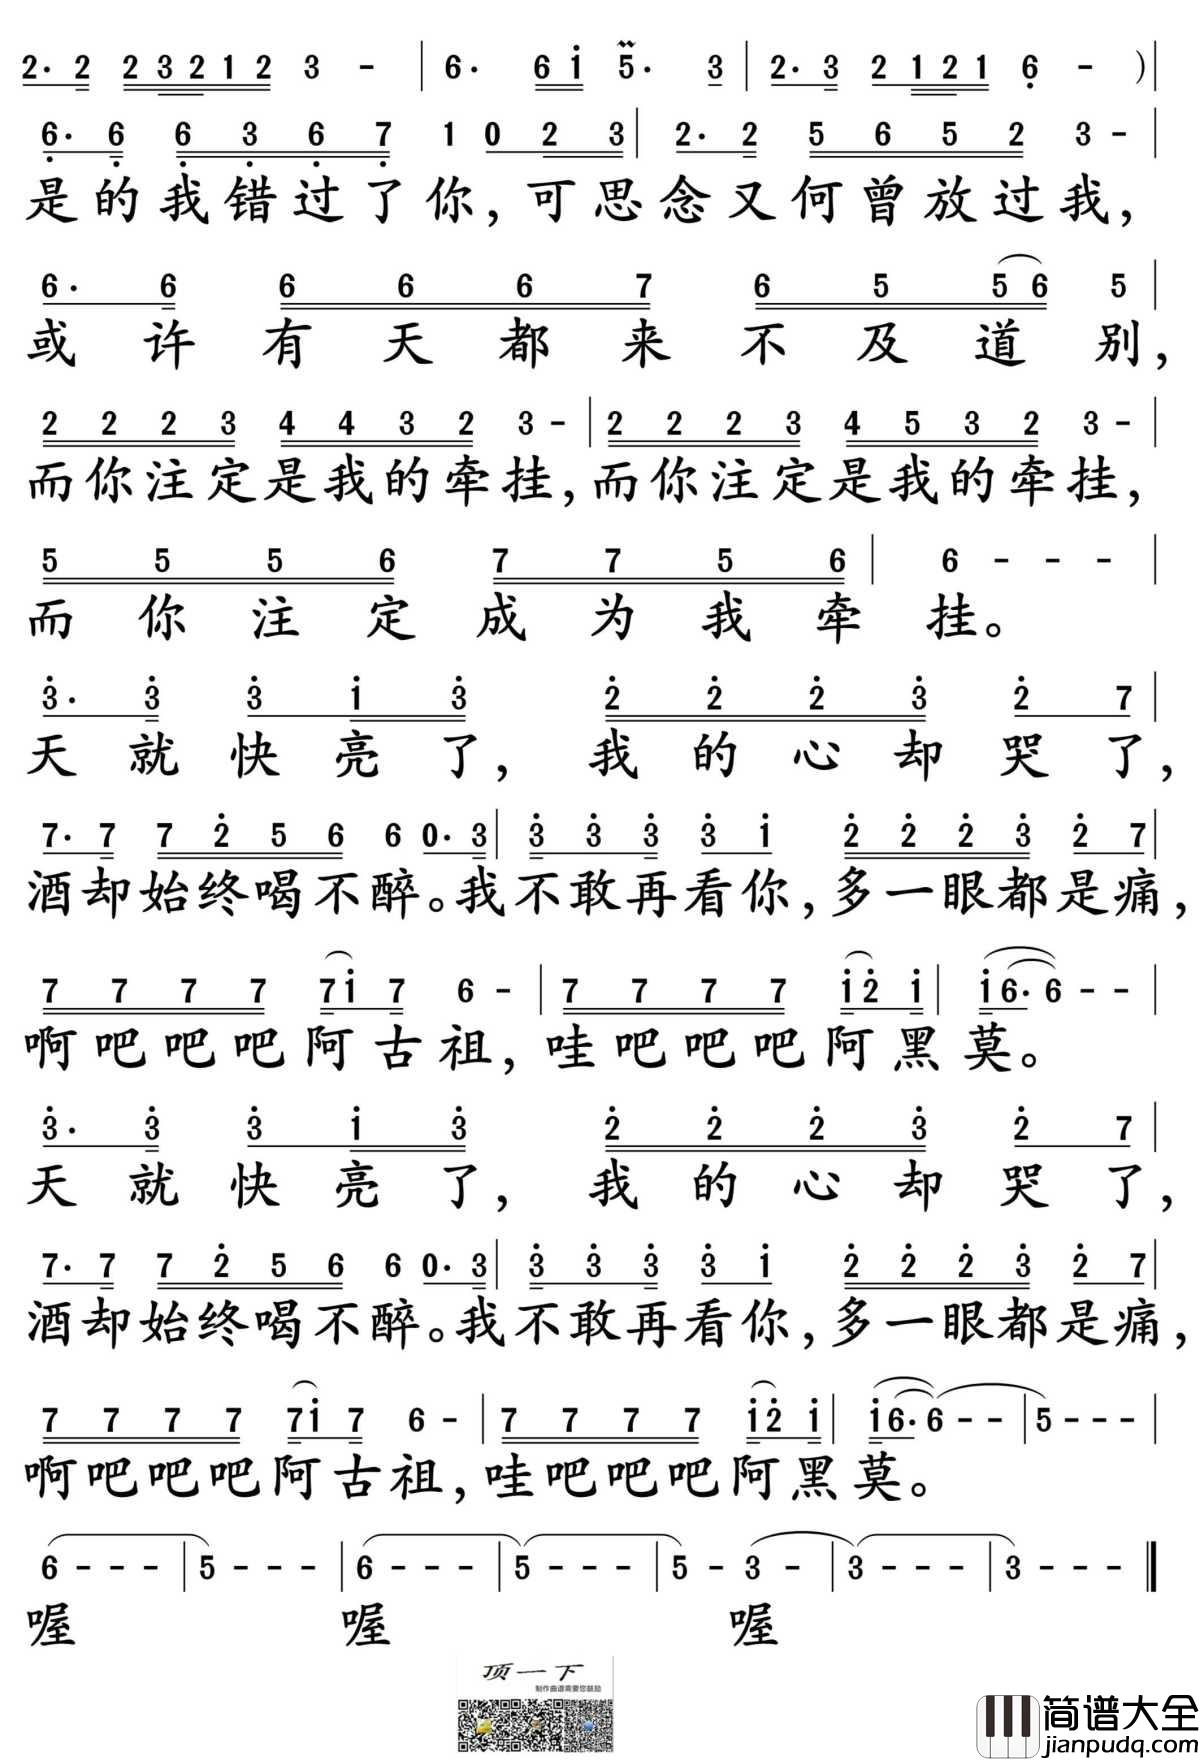 2· 2 2 3 2 1 2 3 - | 6· 6 1 5· 3 | 2· 3 2 1 2 1 6 - )|
6· 6 6 3 6 7 1 0 2 3 | 2· 2 5 6 5 2 3 - |
是的我错过了你,可思念又何曾放过我,
6· 6 6 6 6 7 6 5 5 6 5 |
或许有天都来不及道别,
2 2 2 3 4 4 3 2 3 - | 2 2 2 3 4 5 3 2 3 - |
而你注定是我的牵挂,而你注定是我的牵挂,
5 5 5 6 7 7 5 6 | 6 - - - |
而你注定成为我牵挂。
3· 3 3 1 3 2 2 2 3 2 7 |
天就快亮了,我的心却哭了,
7· 7 7 2 5 6 6 0· 3 | 3 3 3 3 1 2 2 2 3 2 7 |
酒却始终喝不醉。我不敢再看你,多一眼都是痛,
7 7 7 7 7 1 7 6 - | 7 7 7 7 1 2 1 | 1 6· 6 - - |
啊吧吧吧阿古祖,哇吧吧吧阿黑莫。
3· 3 3 1 3 2 2 2 3 2 7 |
天就快亮了,我的心却哭了,
7· 7 7 2 5 6 6 0· 3 | 3 3 3 3 1 2 2 2 3 2 7 |
酒却始终喝不醉。我不敢再看你,多一眼都是痛,
7 7 7 7 7 1 7 6 - | 7 7 7 7 1 2 1 | 1 6· 6 - - | 5 - - - |
啊吧吧吧阿古祖,哇吧吧吧阿黑莫。
6 - - - | 5 - - - | 6 - - - | 5 - - - | 5 - 3 - | 3 - - - | 3 - - - ‖
喔 喔 喔
顶一下
制作曲谱需要您鼓励
简谱大全
jianpudq.com